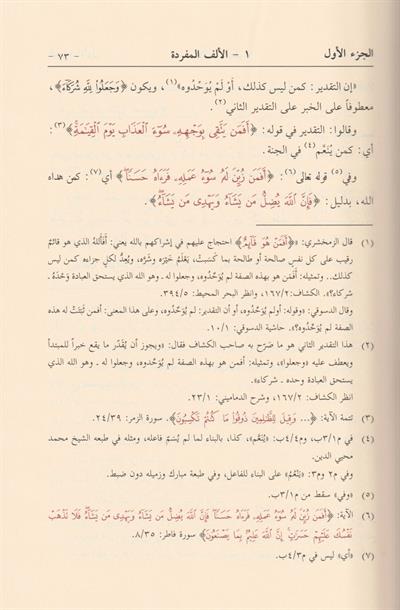 الجزء الأول
١ - الألف المفردة
- ٧٣ -
«إن التقدير: كمن ليس كذلك، أَوْ لَمْ يُوَحِّدُوه»(١)، ويكون ﴿وَجَعَلُوا۟ لِلَّهِ شُرَكَآءَ﴾،
معطوفاً على الخبر على التقدير الثاني(٢).
وقالوا: التقدير في قوله: ﴿أَفَمَن يَتَّقِى بِوَجْهِهِۦ سُوٓءَ ٱلْعَذَابِ يَوْمَ ٱلْقِيَـٰمَةِ﴾(٣):
أي: كمن يُنَعَّم(٤) في الجنة.
وفي(٥) قوله تعالى(٦): ﴿أَفَمَن زُيِّنَ لَهُۥ سُوٓءُ عَمَلِهِۦ فَرَءَاهُ حَسَنًا﴾ أي(٧): كمن هداه
الله، بدليل: ﴿فَإِنَّ ٱللَّهَ يُضِلُّ مَن يَشَآءُ وَيَهْدِى مَن يَشَآءُ﴾.
(١) قال الزمخشري: «﴿أَفَمَنْ هُوَ قَآئِمٌ﴾ احتجاج عليهم في إشراكهم بالله يعني: أَفَاللهُ الذي هو قائمٌ
رقيب على كل نفس صالحة أو طالحة بما كَسَبتْ، يَعْلَمُ خَيْرَه وشَرَّه، ويُعِدُّ لكلٍ جزاءه كمن ليس
كذلك.. وتمثيله: أفمن هو بهذه الصفة لم يُوَحِّدُوه، وجعلوا له ـ وهو الله الذي يستحق العبادة وَحْدَهُ ـ
شركاء؟». الكشاف: ١٦٧/٢، وانظر البحر المحيط: ٣٩٤/٥.
وقال الدسوقي: «وقوله: أولم يُوَحِّدوه، أو أن التقدير: لم يُوَحِّدُوه، وعلى هذا المعنى: أفمن ثَبَتَتْ له هذه
الصفة لم يُوَحِّدُوه؟». حاشية الدسوقي: ١٠/١.
(٢) هذا التقدير الثاني هو ما صَرَّح به صاحب الكشاف فقال: «ويجوز أن يُقَدَّر ما يقع خبراً للمبتدأ
ويعطف عليه «وجعلوا»، وتمثيله: أفمن هو بهذه الصفة لم يُوَحِّدوه، وجعلوا له ـ وهو الله الذي
يستحق العبادة وحده ـ شركاء».
انظر الكشاف: ١٦٧/٢، وشرح الدماميني: ٢٣/١.
(٣) تتمة الآية: ﴿... وَقِيلَ لِلظَّـٰلِمِينَ ذُوقُوا۟ مَا كُنتُمْ تَكْسِبُونَ﴾ سورة الزمر: ٢٤/٣٩.
(٤) في م٣/١ب، وم٤/٤ب: «يُنَعَّم»، كذا، بالبناء لما لم يُسَمّ فاعله، ومثله في طبعه الشيخ محمد
محيي الدين.
وفي م ٢ وم٣: «يَنْعَمُ» على البناء للفاعل، وفي طبعة مبارك وزميله دون ضبط.
(٥) «وفي» سقط من م٣/١ب.
(٦) الآية: ﴿أَفَمَن زُيِّنَ لَهُۥ سُوٓءُ عَمَلِهِۦ فَرَءَاهُ حَسَنًا فَإِنَّ ٱللَّهَ يُضِلُّ مَن يَشَآءُ وَيَهْدِى مَن يَشَآءُ فَلَا تَذْهَبْ
نَفْسُكَ عَلَيْهِمْ حَسَرَٰتٍ إِنَّ ٱللَّهَ عَلِيمٌۢ بِمَا يَصْنَعُونَ﴾ سورة فاطر: ٨/٣٥.
(٧) «أي» ليس في م٤/٣ب.